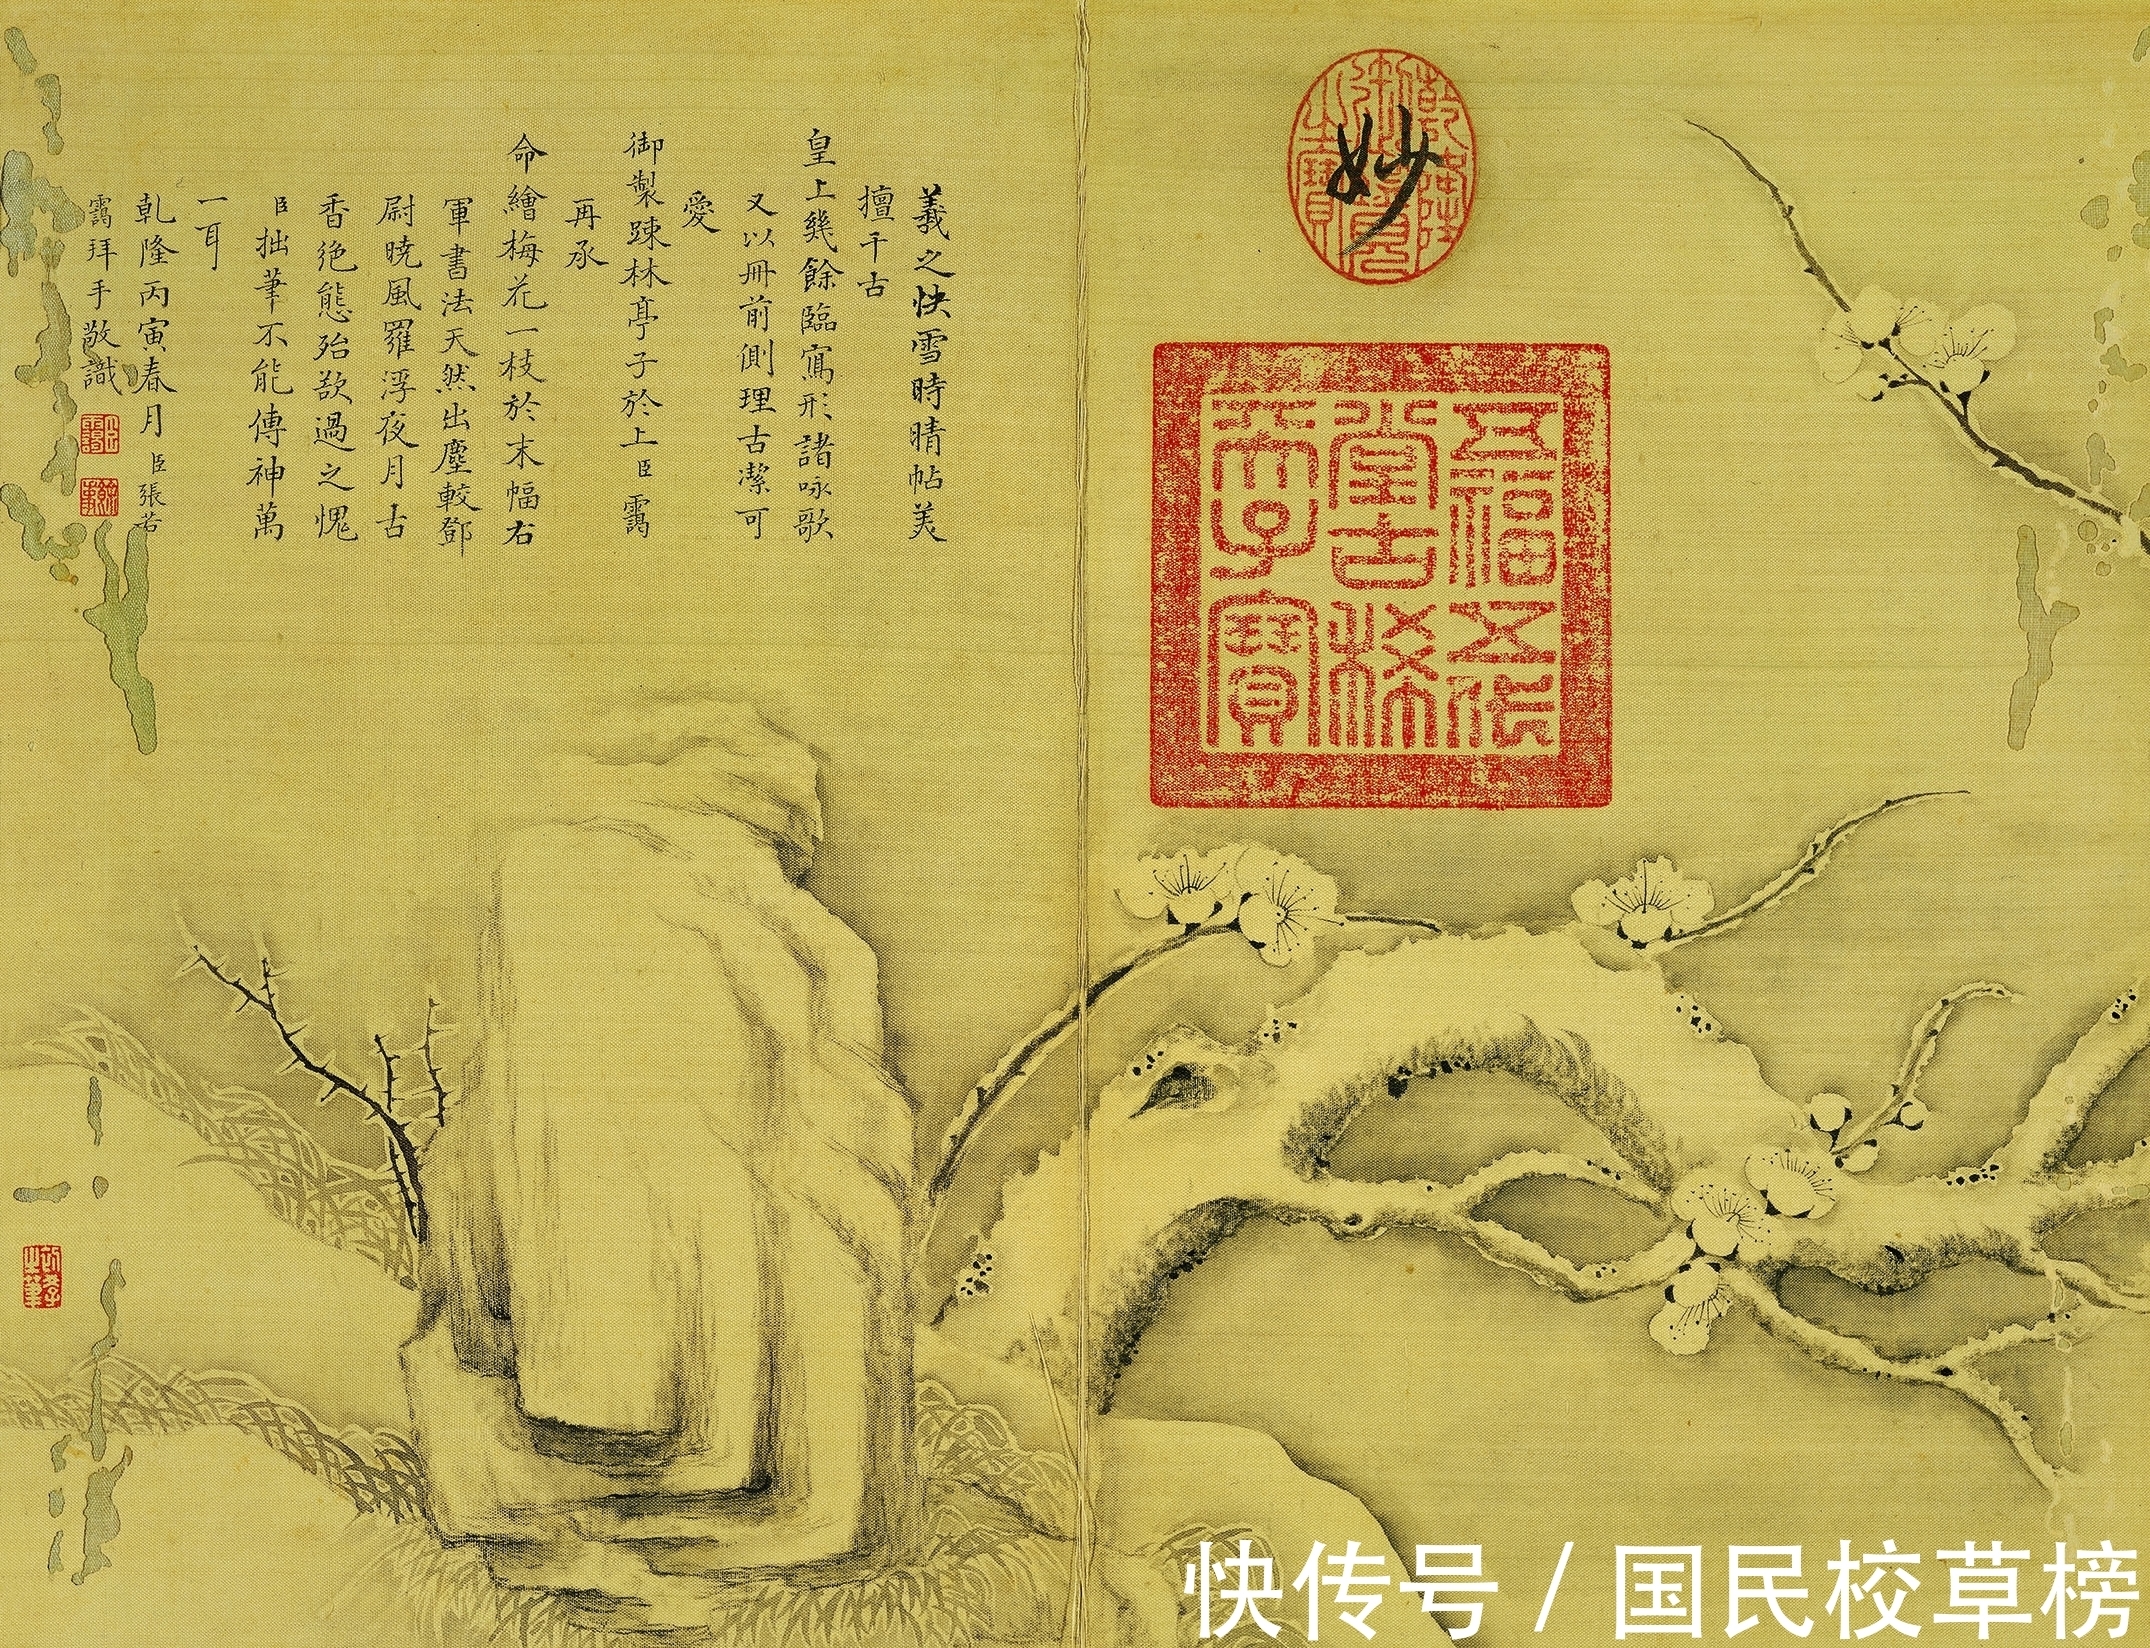 羲之快雪時晴帖美
擅千古
皇上幾餘臨寫形諸咏歌
又以冊前側理古潔可
愛
御製踈林亭子於上臣靄
再承
命繪梅花一枝於末幅右
軍書法天然出塵較鄧
尉曉風羅浮夜月古
香絶態殆欲過之愧
臣拙筆不能傳神萬
一耳
乾隆丙寅春月臣張若
靄拜手敬識
妙
乾隆御覽之寶
五福五代
堂古稀
天子寶
快传号/国民校草榜